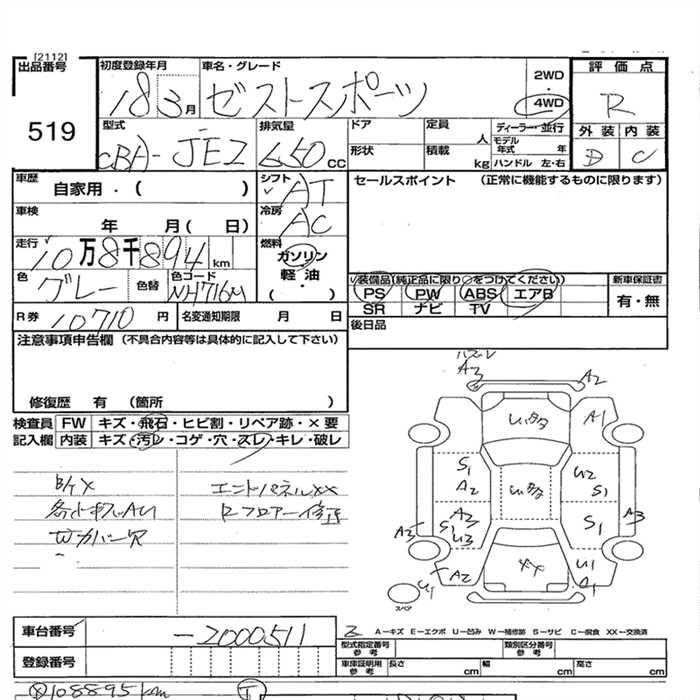 [2112]
出品番号
519
初度登録年月
18 3月
車名・グレード
ゼストスポーツ
2WD
・
4WD
評価点
R
外装 内装
D C
型式
CBA-JE2
排気量
650 CC
ドア
定員 人
ディーラー・並行
モデル年式 年
形状
積載 kg
ハンドル 左・右
車歴
自家用・( )
シフト
AT
車検
年 月( 日)
冷房
AC
セールスポイント (正常に機能するものに限ります)
走行
10万8千894 km
燃料
ガソリン
軽油
・
( )
色
グレー
色替
色コード
NH716M
装備品(純正品に限り○をつけてください)
PS PW ABS エアB
SR ナビ TV
新車保証書
有・無
R券
10710 円
名変通知期限 月 日
後日品
注意事項申告欄 (不具合内容等は具体的に記入して下さい)
修復歴 有 (箇所 )
検査員 FW キズ・飛石・ヒビ割・リペア跡・×要
記入欄 内装 キズ・汚レ・コゲ・穴・スレ・キレ・破レ
エンドパネルXX
Rフロアー修正
Wカバー欠
A3
A2
A1
S1
A2
U2
S1
A3
S1
U3
S1
A3
A3
XX
U1
A2
U1
スペア
車台番号
-2000511
登録番号
A―キズ E―エクボ U―凹み W―補修跡 S―サビ C―腐食 XX―交換済
型式指定番号
参考
類別区分番号
参考
車庫証明用
参考
長さ cm
幅 cm
高さ cm
108895km